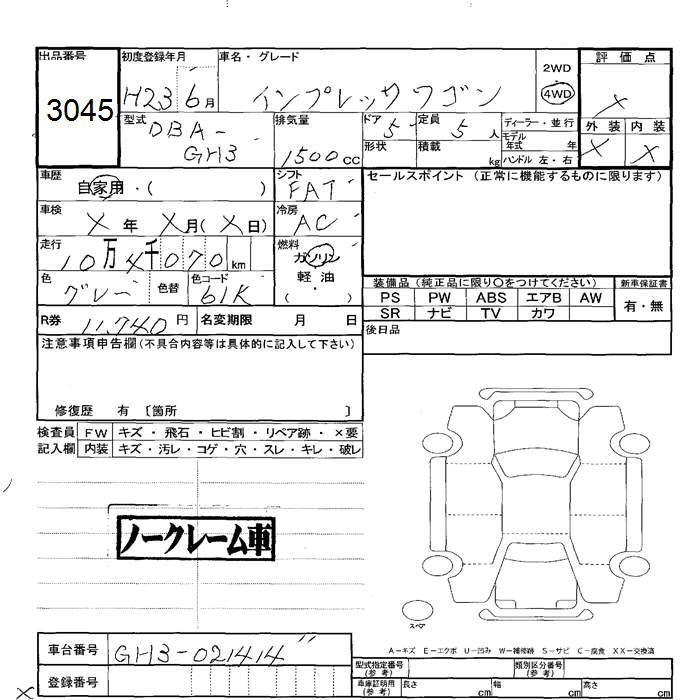 出品番号 初度登録年月 車名・グレード 2WD 評価点
3045 H23 6月 インプレッサワゴン 4WD ×
型式 DBA-GH3 排気量 1500cc ドア 5 定員 5人 ディーラー・並行 外装 内装
形状 積載 kg モデル年式 年 × ×
ハンドル 左・右
車歴 自家用・( ) シフト FAT セールスポイント (正常に機能するものに限ります)
車検 ×年 ×月(×日) 冷房 AC
走行 10万4千070km 燃料 ガソリン
軽・油
( ・ )
色 グレー 色替 色コード 61K
装備品 (純正品に限り○をつけてください) 新車保証書
PS PW ABS エアB AW 有・無
SR ナビ TV カワ
R券 11,740円 名変期限 月 日 後日品
注意事項申告欄(不具合内容等は具体的に記入して下さい)
修復歴 有 〔箇所 〕
検査員 FW キズ・飛石・ヒビ割・リペア跡・×要
記入欄 内装 キズ・汚レ・コゲ・穴・スレ・キレ・破レ
ノークレーム車
スペア
A-キズ E-エクボ U-凹み W-補修跡 S-サビ C-腐食 XX-交換済
車台番号 GH3-021414
型式指定番号(参考) 類別区分番号(参考)
登録番号
車庫証明用(参考) 長さ cm 幅 cm 高さ cm
×